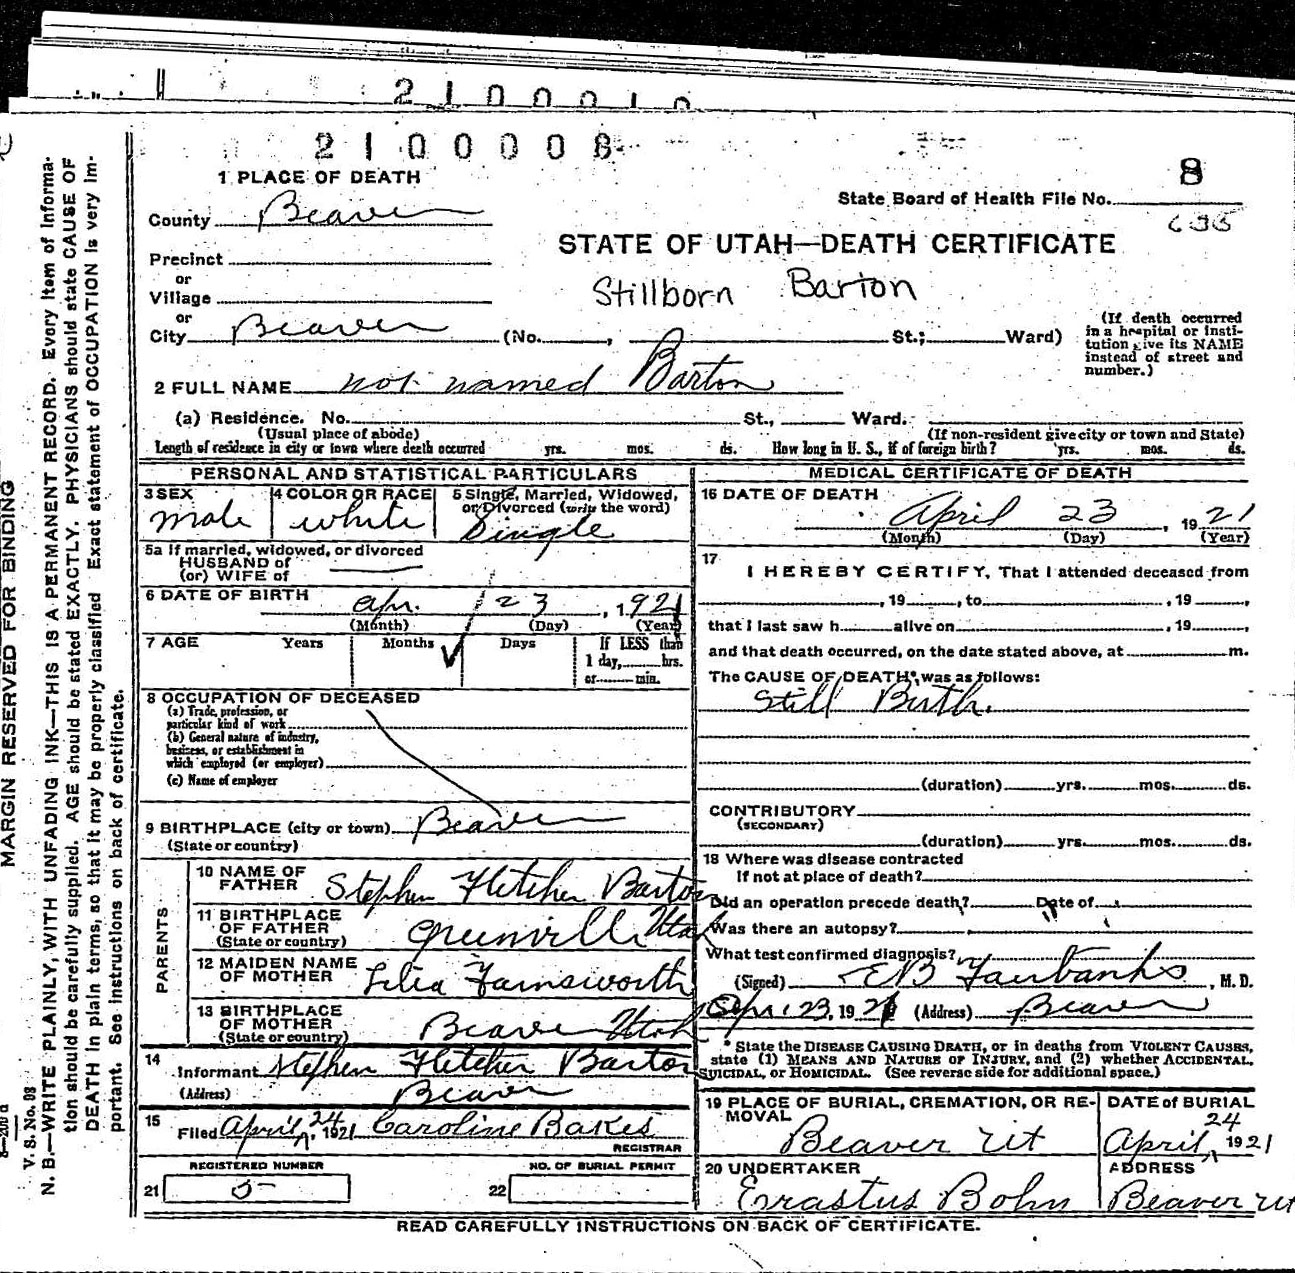 2100010
2100008
8
1 PLACE OF DEATH
State Board of Health File No.
635
County Beaver
STATE OF UTAH—DEATH CERTIFICATE
Precinct
or
Village
Stillborn Barton
or
City Beaver (No. , St.; Ward)
(If death occurred in a hospital or insti-
tution give its NAME
instead of street and
number.)
2 FULL NAME not named Barton
(a) Residence. No. St., Ward.
(Usual place of abode) (If non-resident give city or town and State)
Length of residence in city or town where death occurred yrs. mos. ds. How long in U. S., if of foreign birth? yrs. mos. ds.
PERSONAL AND STATISTICAL PARTICULARS
3 SEX
male
4 COLOR OR RACE
white
5 Single, Married, Widowed,
or Divorced (write the word)
Single
5a If married, widowed, or divorced
HUSBAND of
(or) WIFE of
6 DATE OF BIRTH
Apr. 23, 1921
(Month) (Day) (Year)
7 AGE Years Months Days If LESS than
1 day, hrs.
or min.
8 OCCUPATION OF DECEASED
(a) Trade, profession, or
particular kind of work
(b) General nature of industry,
business, or establishment in
which employed (or employer)
(c) Name of employer
9 BIRTHPLACE (city or town) Beaver
(State or country)
PARENTS
10 NAME OF
FATHER Stephen Fletcher Barton
11 BIRTHPLACE
OF FATHER Greenvill Utah
(State or country)
12 MAIDEN NAME
OF MOTHER Lelia Farnsworth
13 BIRTHPLACE
OF MOTHER Beaver Utah
(State or country)
14
Informant Stephen Fletcher Barton
(Address) Beaver
15
Filed April 24, 1921 Caroline Bakes
REGISTRAR
REGISTERED NUMBER NO. OF BURIAL PERMIT
21 5 22
MEDICAL CERTIFICATE OF DEATH
16 DATE OF DEATH
April 23, 1921
(Month) (Day) (Year)
17
I HEREBY CERTIFY, That I attended deceased from
, 19 , to , 19 ,
that I last saw h alive on , 19 ,
and that death occurred, on the date stated above, at m.
The CAUSE OF DEATH* was as follows:
Still Birth.
(duration) yrs. mos. ds.
CONTRIBUTORY
(SECONDARY)
(duration) yrs. mos. ds.
18 Where was disease contracted
If not at place of death?
Did an operation precede death? Date of
Was there an autopsy?
What test confirmed diagnosis?
(Signed) EB Fairbanks, M. D.
Apr. 23, 1921 (Address) Beaver
* State the DISEASE CAUSING DEATH, or in deaths from VIOLENT CAUSES,
state (1) MEANS AND NATURE OF INJURY, and (2) whether ACCIDENTAL,
SUICIDAL, or HOMICIDAL. (See reverse side for additional space.)
19 PLACE OF BURIAL, CREMATION, OR RE-
MOVAL
Beaver Ut
DATE of BURIAL
April 24 1921
20 UNDERTAKER
Errastus Bohn
ADDRESS
Beaver Ut
READ CAREFULLY INSTRUCTIONS ON BACK OF CERTIFICATE.
MARGIN RESERVED FOR BINDING
V. S. No. 98
N. B.—WRITE PLAINLY, WITH UNFADING INK—THIS IS A PERMANENT RECORD. Every item of informa-
tion should be carefully supplied. AGE should be stated EXACTLY. PHYSICIANS should state CAUSE OF
DEATH in plain terms, so that it may be properly classified. Exact statement of OCCUPATION is very im-
portant. See instructions on back of certificate.